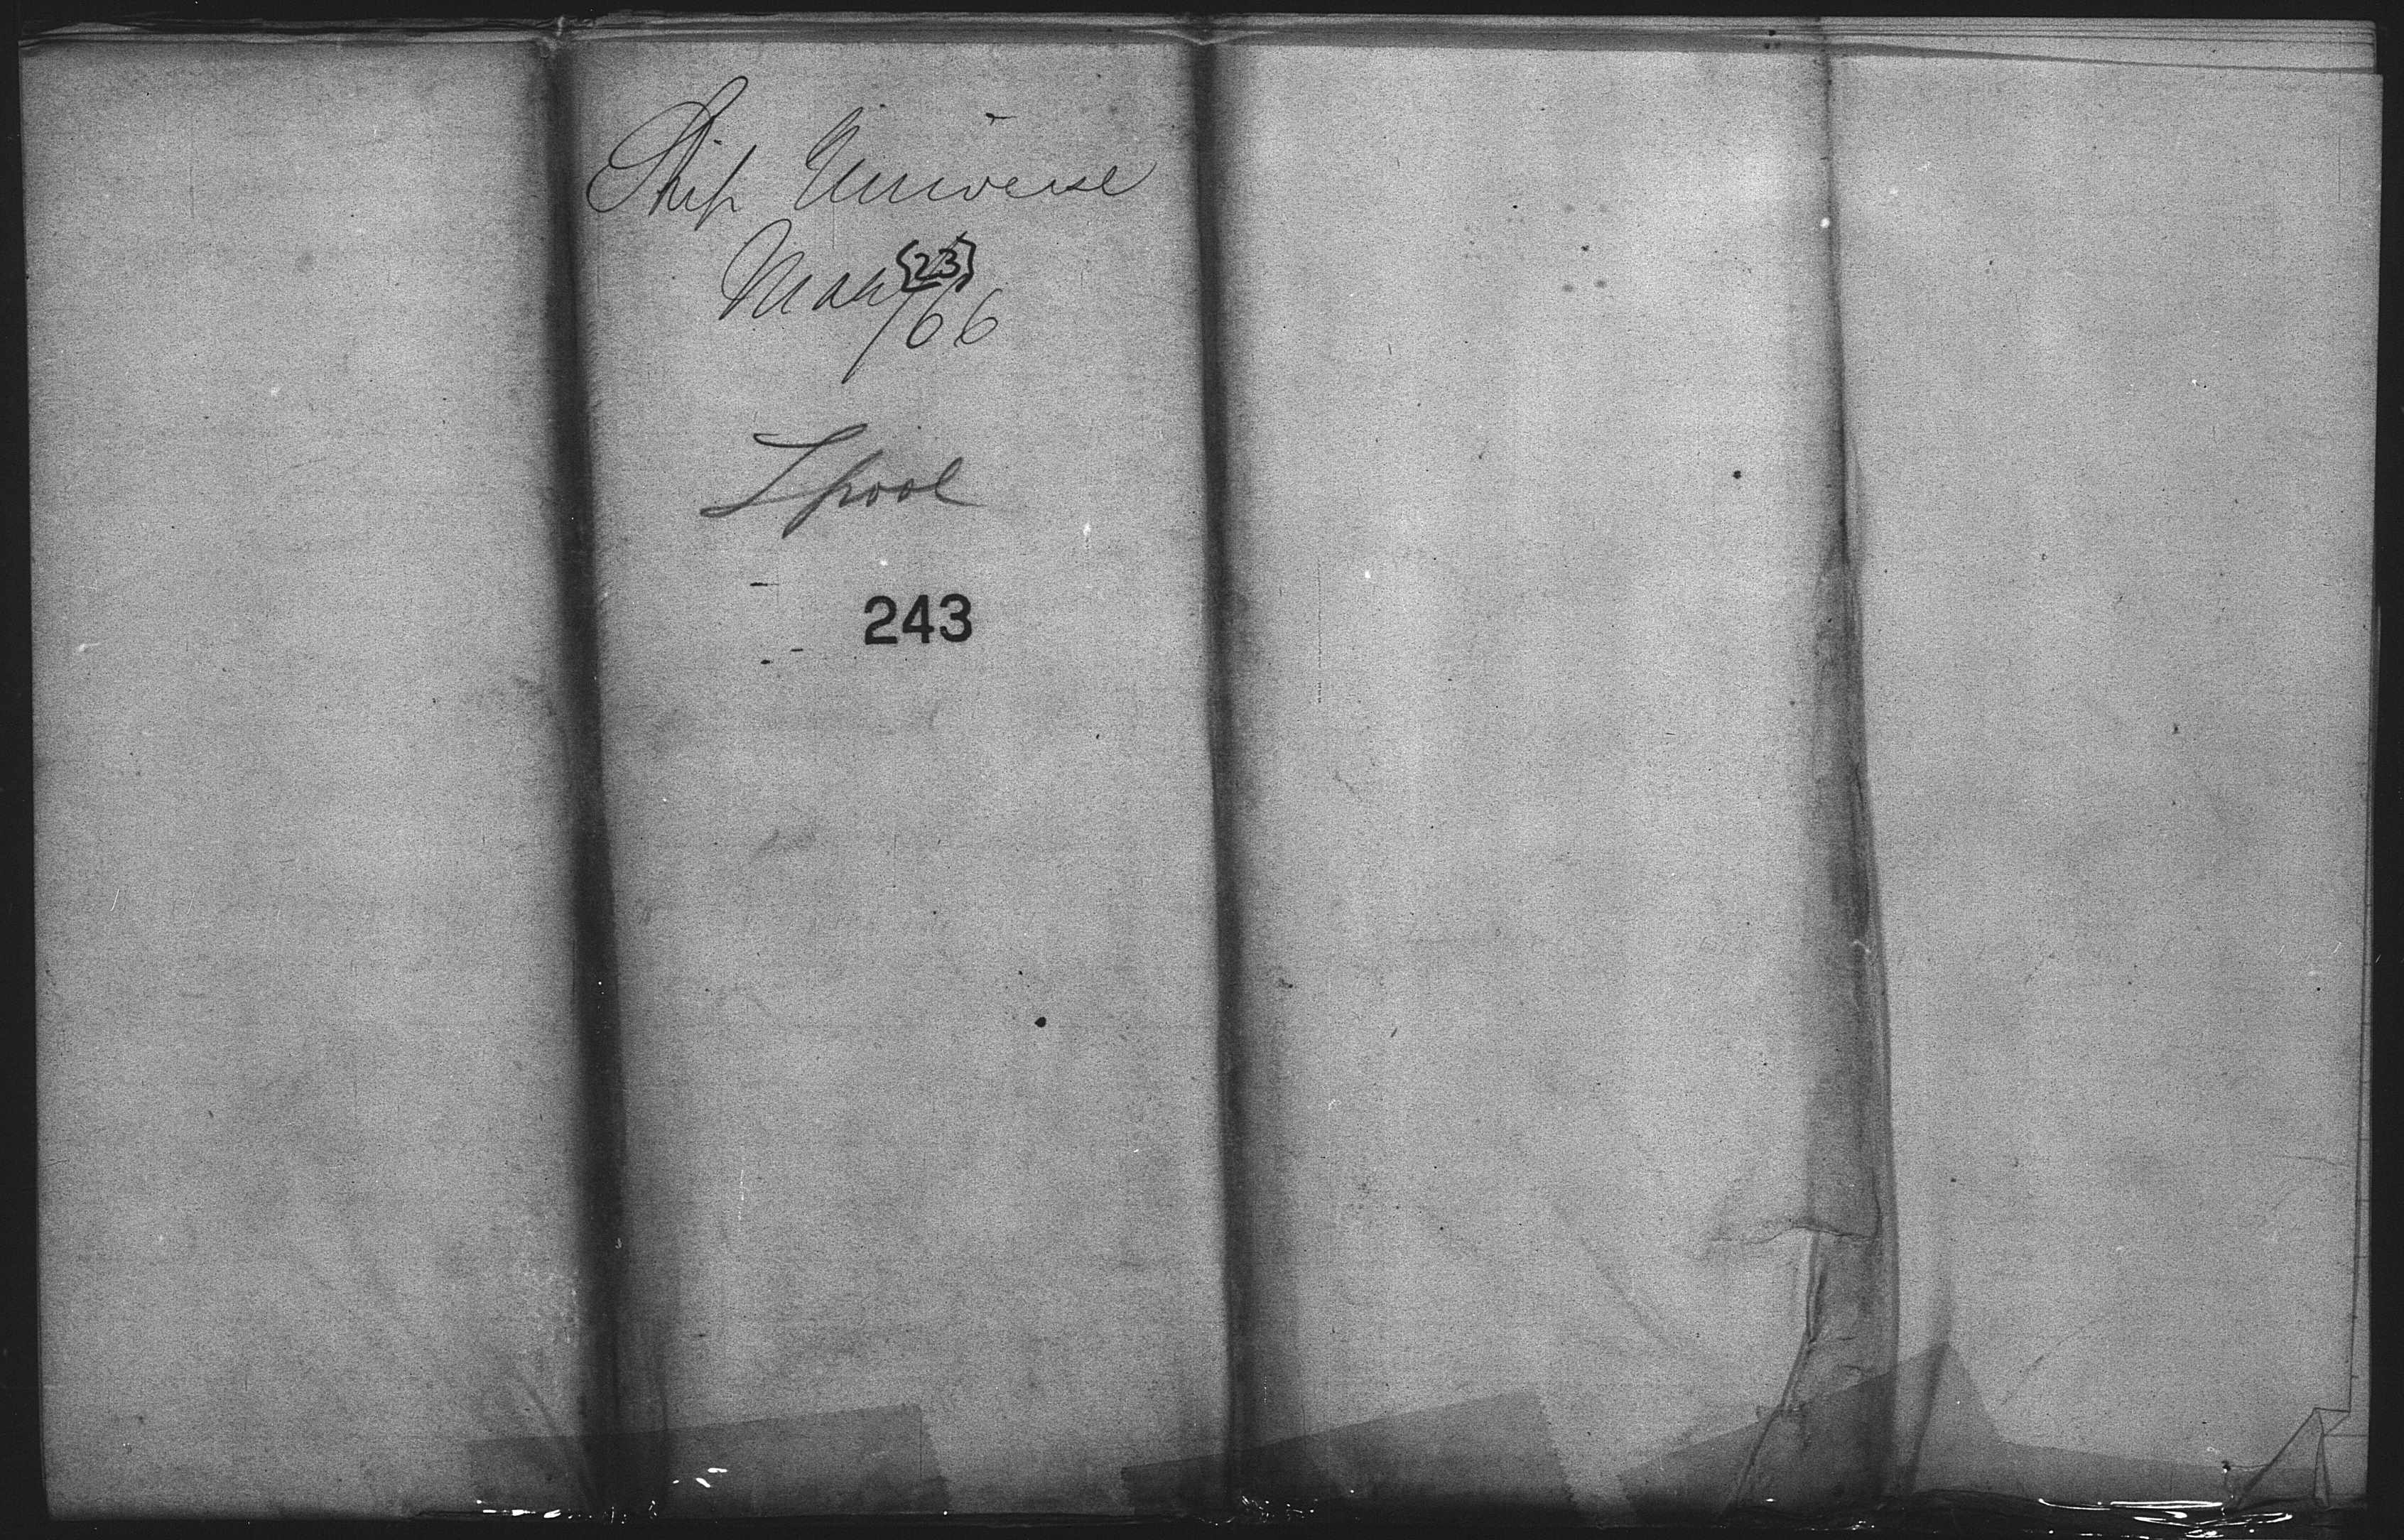 Ship Universe
May {23}
/66
Lpool
243